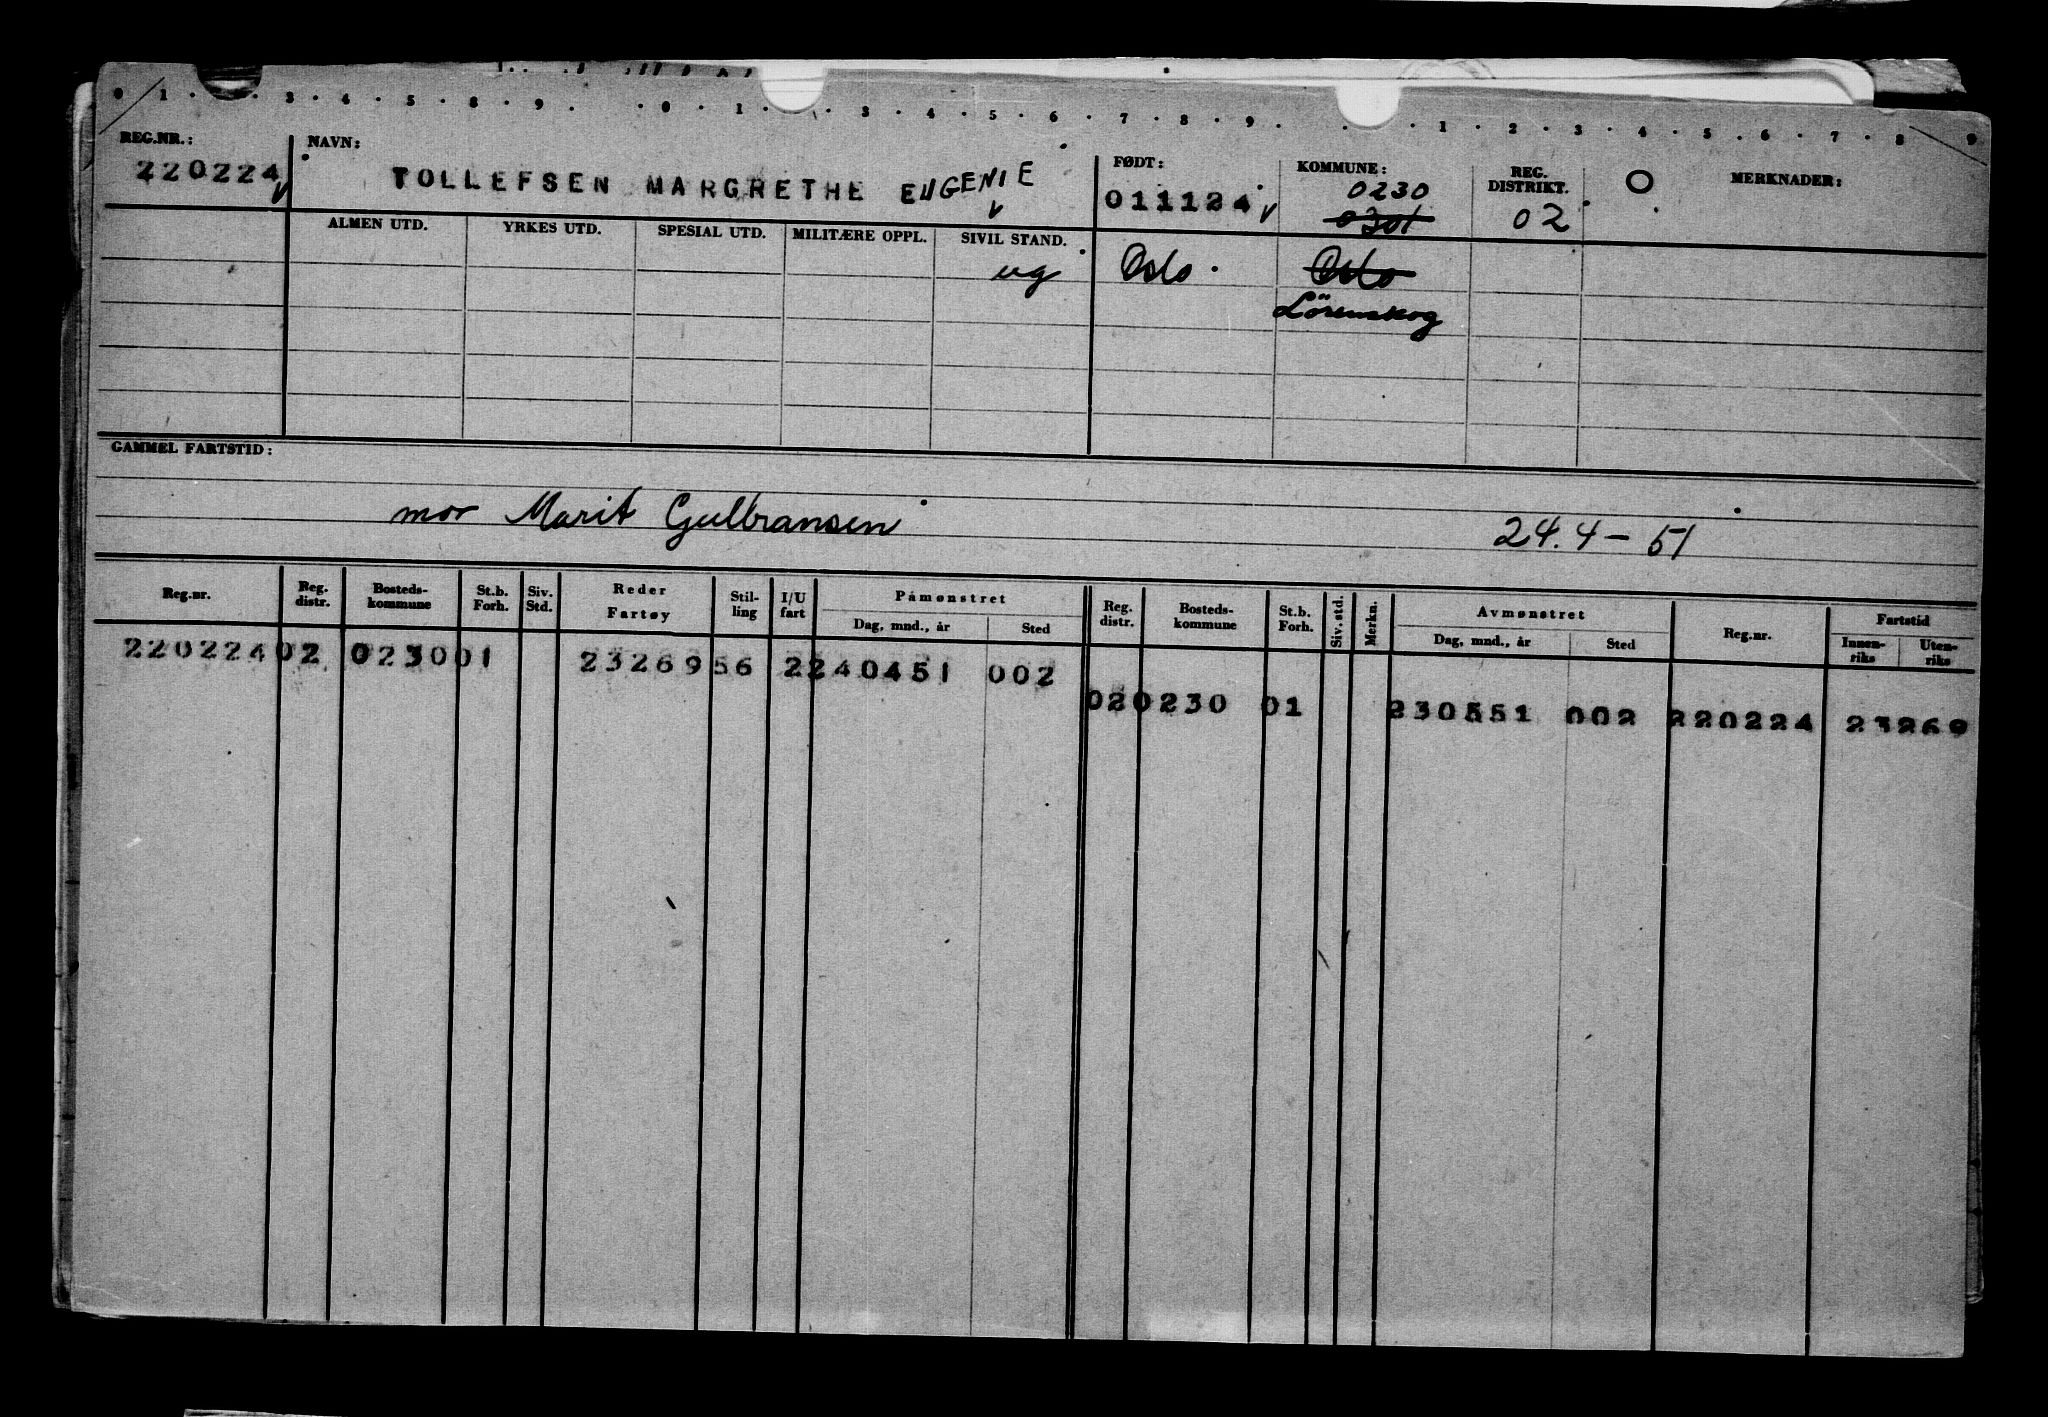 0 1 · · 3 · 4 · 5 · 8 · 9 · · 0 · 1 · · 3 · 4 · 5 · 6 · 7 · 8 · 9 · · · 1 · 2 · 3 · 4 · 5 · 6 · 7 · 8 · 9
REG.NR.: NAVN: FØDT: KOMMUNE: REG. DISTRIKT. O MERKNADER:
220224 TOLLEFSEN MARGRETHE EUGENIE 011124 0230 02
0301
ALMEN UTD. YRKES UTD. SPESIAL UTD. MILITÆRE OPPL. SIVIL STAND.
ug Oslo Oslo
Lörenskog
GAMMEL FARTSTID:
mor Marit Gulbransen 24.4-51
Reg.nr. Reg. distr. Bosteds-kommune St.b. Forh. Siv. Std. Reder Fartøy Stil-ling I/U fart Påmønstret Dag, mnd., år Sted Reg. distr. Bosteds-kommune St.b. Forh. Siv. std. Merkn. Avmønstret Dag, mnd., år Sted Reg.nr. Fartstid Innen-riks Uten-riks
220224 02 0230 01 23269 56 2 240451 002
02 0230 01 230551 002 220224 23269